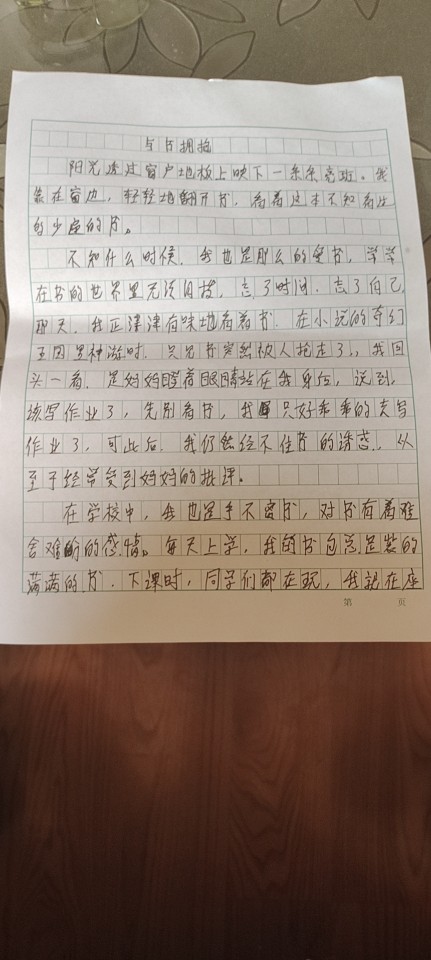 与书拥抱
阳光透过窗户地板上映下一条条亮斑。我
靠在窗边，轻轻地翻开书，看着这本不知看过
多少遍的书。
不知什么时候，我也是那么的爱书，常常
在书的世界里无法自拔，忘了时间，忘了自己
那天，我正津津有味地看着书，在小说的奇幻
王国里神游时，只见书突然被人抢走了，我回
头一看，是妈妈瞪着眼睛站在我身后，说到，
该写作业了，先别看书，我只好乖乖的去写
作业了，可此后，我仍然经不住书的诱惑，以
至于经常受到妈妈的批评。
在学校中，我也是手不离书，对书有着难
舍难分的感情。每天上学，我的书包总是装的
满满的书，下课时，同学们都在玩，我就在座
第 页